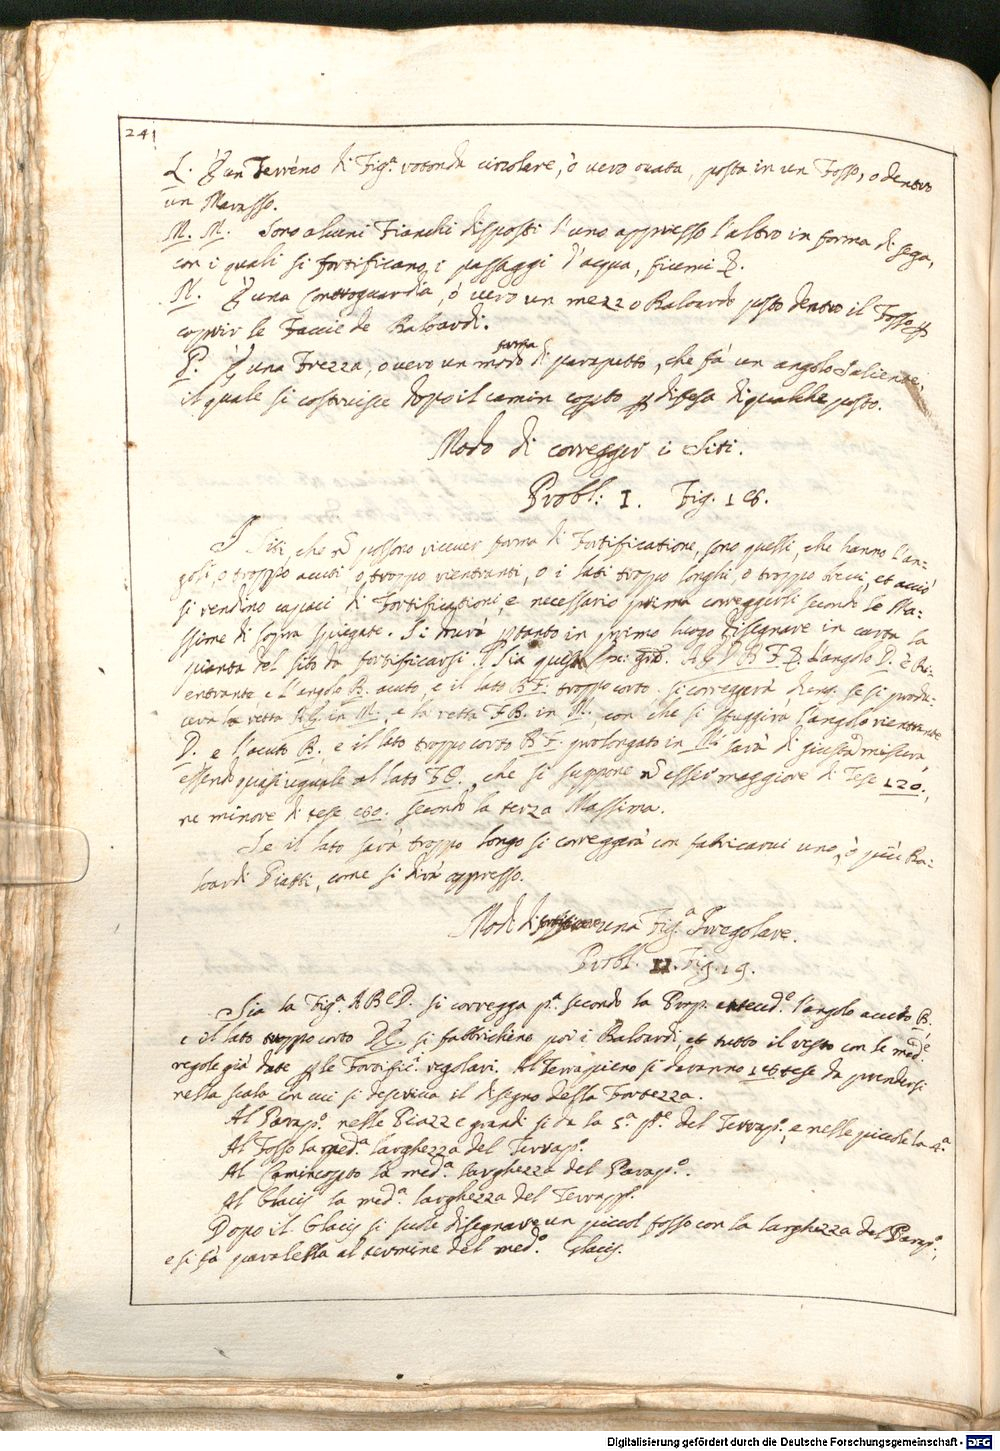 241
L. È un Terreno di Fig.ª rotonda circolare, ò vero ovata, posta in un Fosso, o dentro
un Marasso.
M. M. Sono alcuni Fianchi disposti l'uno appresso l'altro in forma di sega,
con i quali si fortificano i passaggi d'acqua,
N. È una Controguardia, ò vero un mezzo Baloardo posto dentro il Fosso p
coprir le Faccie de Baloardi.
P. È una Frezza, o vero un modo forma di parapetto, che fà un angolo Saliente,
il quale si costruisce dopo il camin coperto p difesa di qualche posto.
Modo di corregger i Siti.
Probl: I. Fig. 18.
I Siti, che nõ possono ricever forma di Fortificatione, sono quelli, che hanno l'an-
goli, o troppo acuti o, troppo rientranti, o i lati troppo longhi, o troppo brevi, et acciò
si rendino capaci di Fortificationi, è necessario prima correggerli secondo le Ma-
ssime di sopra spiegate. Si dovrà ptanto in primo luogo disegnare in carta la
pianta del sito da fortificarsi. Sia questa l'angolo D. è Ri-
entrante e l'angolo B. acuto, e il lato B F. troppo corto. si correggerà se si produ-
cerà la retta in M., e la retta F B. in N., con che si sfuggirà l'angolo rientrante
D. e l'acuto B., e il lato troppo corto B F. prolongato in sarà di giusta misura,
essendo quasi uguale al lato che si suppone nõ esser maggiore di Tese 120.,
ne minore di tese 80. secondo la terza Massima.
Se il lato sarà troppo longo si correggerà con fabricarvi uno, ò più Ba-
loardi Piatti, come si dirà appresso.
Modo di fortificare una Fig.ª Irregolare.
Probl. II. Fig. 19.
Sia la Fig.ª A B C D. si corregga p.ª secondo la Prop. anteced.e l'angolo acuto B.
e il lato troppo corto D C. si fabbrichino poi i Baloardi, et tutto il resto con le med.e
regole già date p le Fortific.i regolari. Al Terrapieno si daranno tese da prendersi
nella scala con cui si descrive il disegno della Fortezza.
Al Parap.o nelle Piazze grandi si dà la 5.ª p.te del Terrap.o, e nelle piccole la 4.ª
Al Fosso la med.ª larghezza del Terrap.o
Al Camincoperto la med.ª larghezza del Parap.o.
Al Glacis la med.ª larghezza del Terrap.o
Dopo il Glacis si suole disegnare un piccol fosso con la larghezza del Parap.o,
e si fà paralella al termine del med.o Glacis.
Digitalisierung gefördert durch die Deutsche Forschungsgemeinschaft - DFG